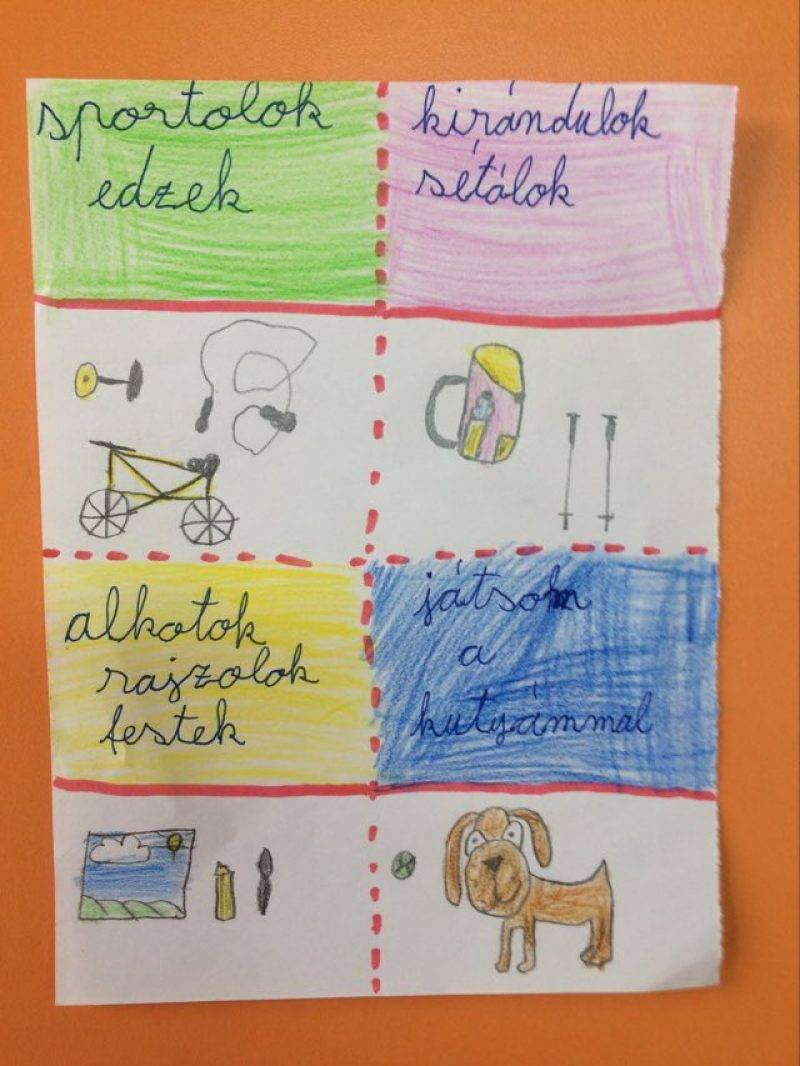 sportolok
edzek
kirándulok
sétálok
alkotok
rajzolok
festek
játsom
a
kutyámmal